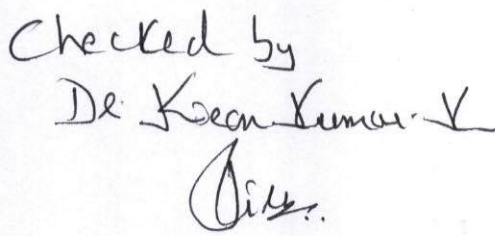 Checked by
Dr. Kiran Kumar. K